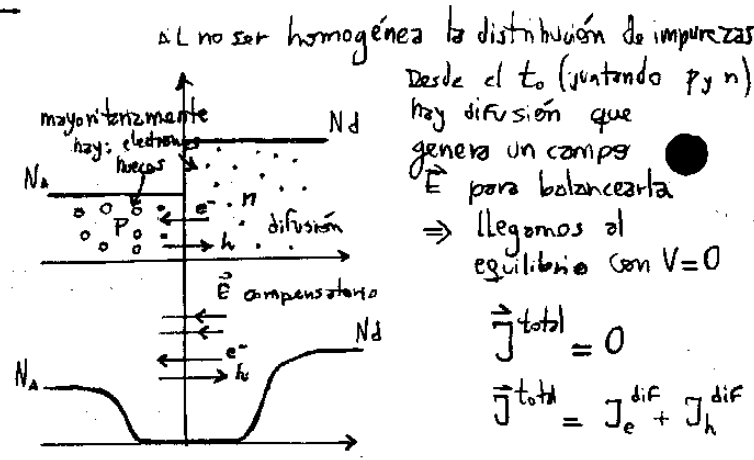 al no ser homogénea la distribución de impurezas
Desde el t₀ (juntando p y n)
hay difusión que
genera un campo
E⃗ para balancearla
⇒ llegamos al
equilibrio con V=0
J⃗ total = 0
J⃗ total = J_e^dif + J_h^dif
mayoritariamente
hay: electrones
huecos
Nd
N_A
P
e⁻
n
h
difusión
E⃗ compensatorio
Nd
e⁻
N_A
h